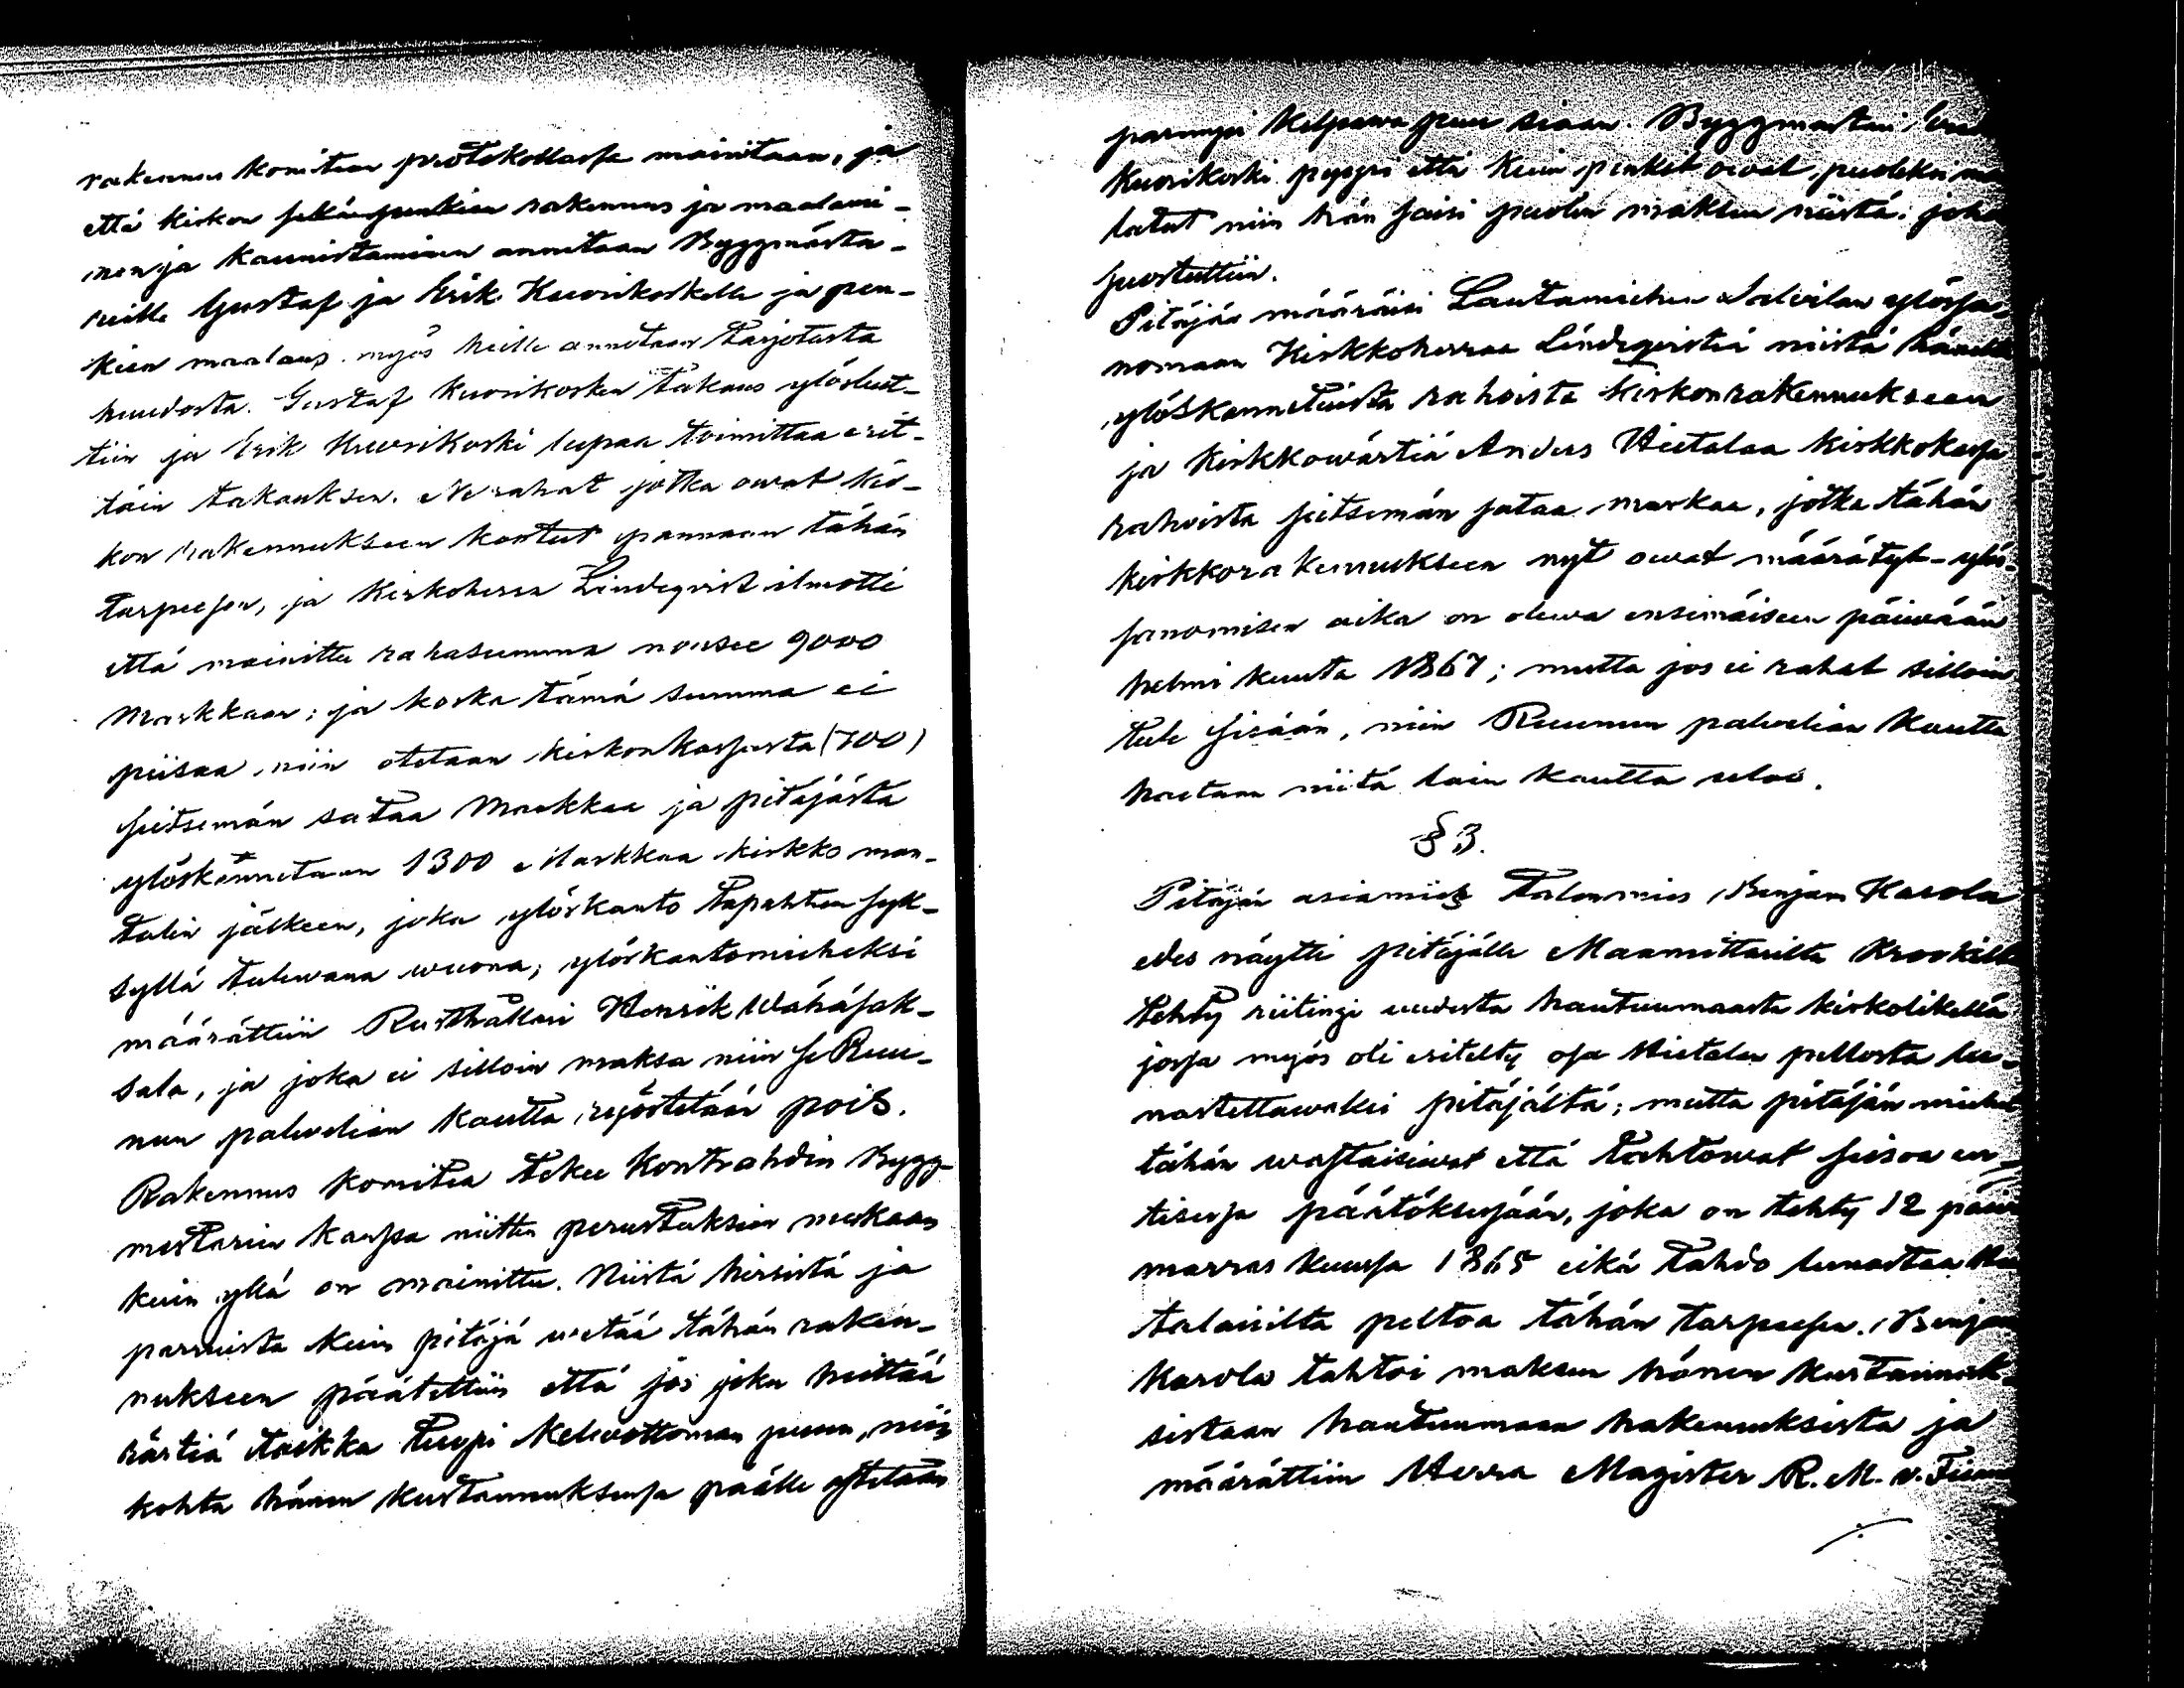 rakennus komitean protokollassa mainitaan, ja
että kirkon sekä penkien rakennus ja maalami-
nen ja kaunistaminen annetaan Byggmästa-
reille Gustaf ja Erik Kuorikoskelle ja pen-
kien maalaus myös heille annetaan tarjotusta
huudosta. Gustaf Kuorikosken takaus ylösluet-
tiin ja Erik Kuorikoski lupaa toimittaa erit-
täin takauksen. Ne rahat jotka owat kir-
kon rakennukseen kootut pannaan tähän
tarpeesen, ja Kirkoherra Lindeqvist ilmotti
että mainittu rahasumma nousee 9000
Markkaan; ja koska tämä summa ei
piisaa niin otetaan kirkonkassasta (700)
seitsemän sataa Markkaa ja pitäjästä
ylöskannetaan 1300 Markkaa kirkko man-
talin jälkeen, joka ylöskanto tapahtuu syk-
syllä tulewana wuona; ylöskantomieheksi
määrättiin Rusthållari Henrik Wähäsak-
sala, ja joka ei silloin maksa niin se Ruu-
nun palwelian kautta ryöstetään pois.
Rakennus komitea tekee kontrahdin Bygg-
mestarien kanssa niitten perustuksien mukaan
kuin yllä on mainittu. Niistä hirsistä ja
parruista kuin pitäjä wetää tähän raken-
nukseen päätettiin että jos joku heittää
rästiä taikka tuopi kelwottoman puun, niin
kohta hänen kustannuksensa päälle ostetaan
parempi kelpaawa puu siaan. Byggmestari
Kuorikoski pyysi että kuin penkit owat puoleksi
latut niin hän saisi puolen maksun niistä; johon
suostuttiin.
Pitäjäs määräisi Lautamiehen Salwilan ylössa-
nomaan Kirkkoherraa Lindeqvistiä niistä häneltä
ylöskannetuista rahoista kirkonrakennukseen
ja kirkkowärtiä Anders Hietalaa kirkkokassa
rahoista seitsemän sataa markaa, jotka tähän
kirkkorakennukseen nyt owat määrätyt - ylös-
sanomisen aika on olewa ensimäiseen päiwään
helmi kuuta 1867; mutta jos ei rahat silloin
tule sisään, niin Ruunun palwelian kautta
haetaan niitä lain kautta ulos.
§ 3.
Pitäjän asiamies Talonmies Benjam Karola
edes näytti pitäjälle Maamittarilta Krookilta
tehty riitingi uudesta hautuumaasta kirkolikellä
jossa myös oli eritelty osa Hietalan pellosta lu-
nastettawaksi pitäjältä; mutta pitäjän miehet
tähän wastaisiwat että tahtowat seisoa en-
tisessa päätöksessään, joka on tehty 12 päiw
marras kuussa 1865 eikä tahdo lunastaa Hie
talaisilta peltoa tähän tarpeesen. Benjam
Karola tahtoi maksun hänen kustannuk-
sistaan hautuumaan hakemuksista ja
määrättiin Herra Magister R. M. v.